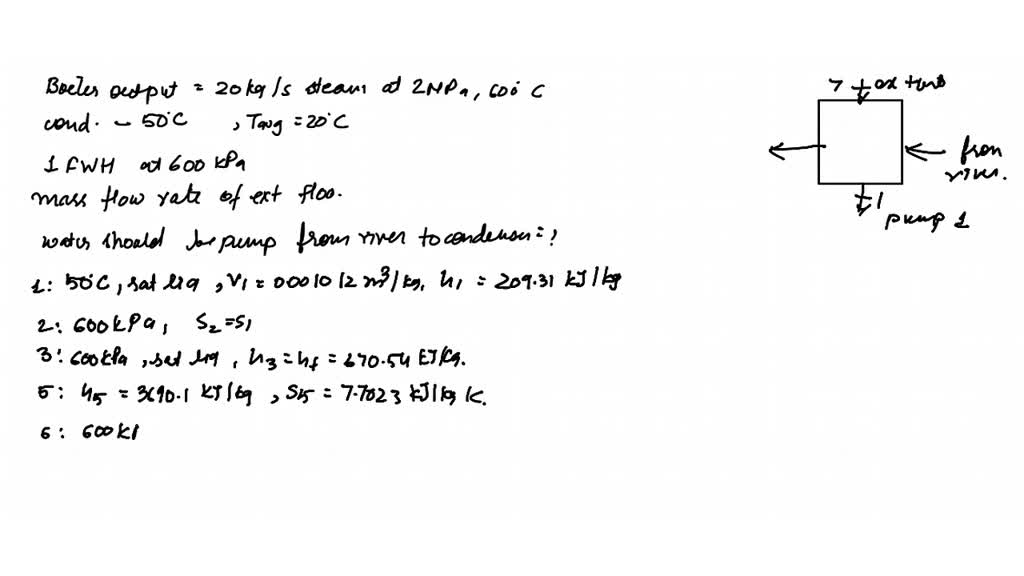 Boiler output = 20 kg/s steam at 2MPa, 600°C
cond. - 50°C , Tavg = 20°C
1 FWH at 600 kPa
mass flow rate of ext floo.
water should be pump from river to condenser = ?
1: 50°C, sat liq , V1 = 0001012 m³/kg, h1 = 209.31 kJ/kg
2: 600kPa, S2=S1
3: 600kPa, sat liq , h3 = hf = 670.54 kJ/kg.
5: h5 = 3690.1 kJ/kg , S5 = 7.7023 kJ/kg K.
6: 600kP
7 ex turb
from
river.
1
pump 1